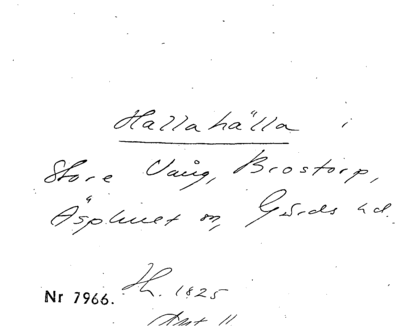 Hallahälla i
Store Vång, Brostorp,
Äsphult sn, Gärds hd.
Nr 7966. H. 1825